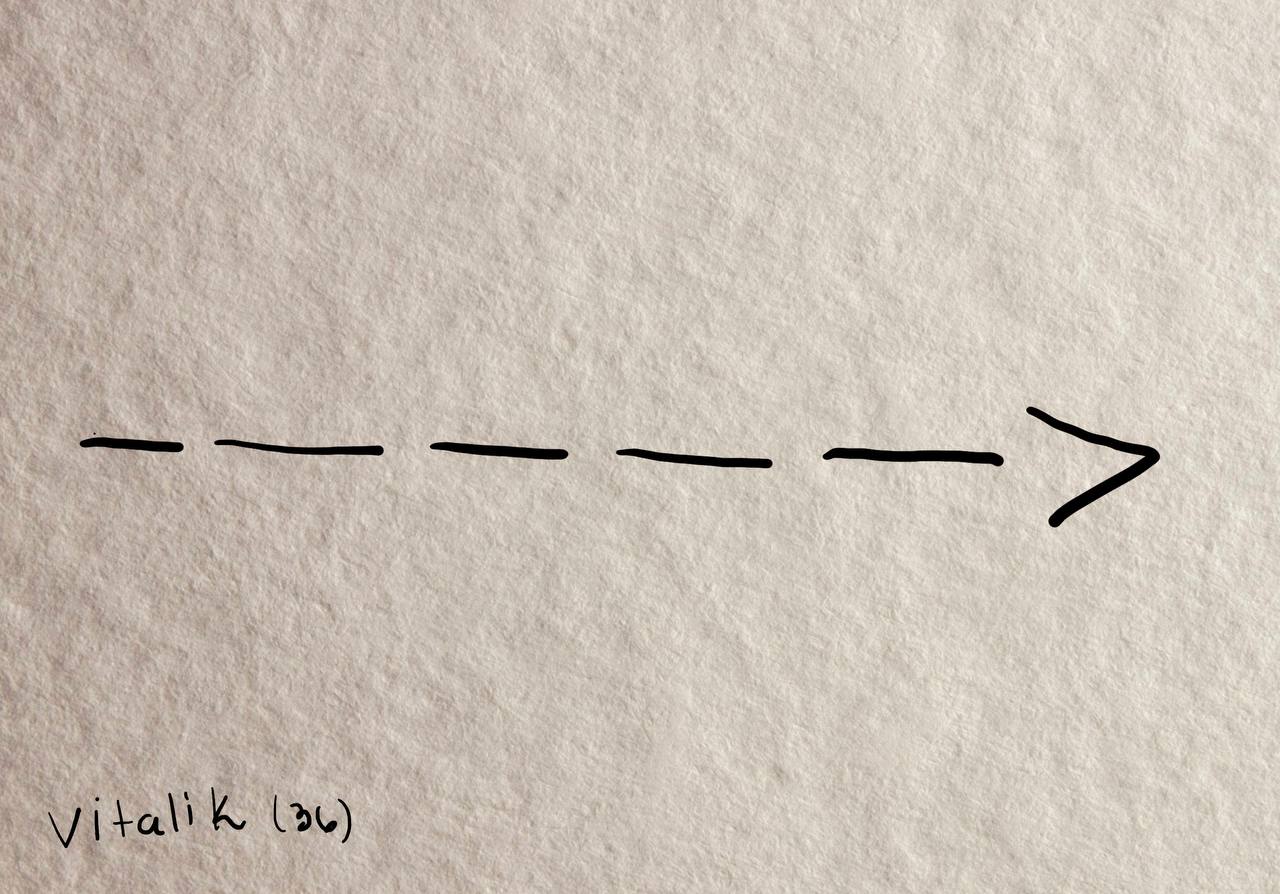 Vitalik (36)